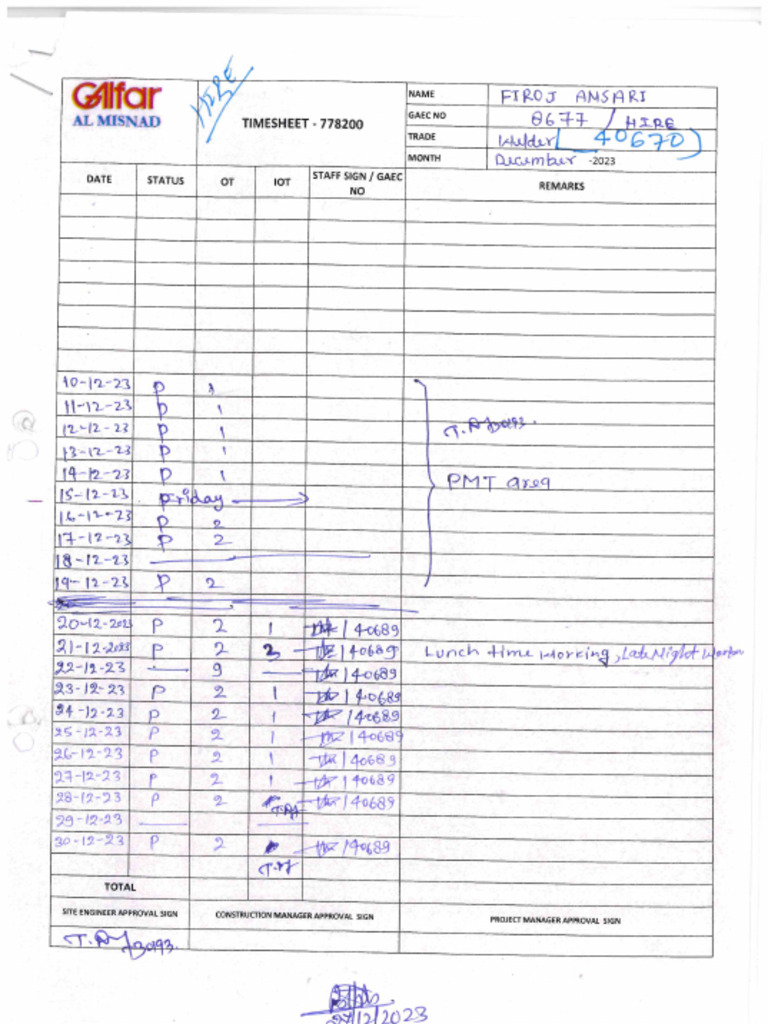 GAlfar
AL MISNAD
HIRE
TIMESHEET - 778200
NAME FIROJ ANSARI
GAEC NO 8677 / HIRE
TRADE Welder (40670)
MONTH December -2023
DATE STATUS OT IOT STAFF SIGN / GAEC NO REMARKS
10-12-23 P 1
11-12-23 P 1
12-12-23 P 1
13-12-23 P 1
14-12-23 P 1
PMT area
15-12-23 Friday
16-12-23 P 2
17-12-23 P 2
18-12-23
19-12-23 P 2
20-12-2023 P 2 1 /40689
21-12-2023 P 2 3 /40689 Lunch time working, Late Night
22-12-23 — 9 — /40689
23-12-23 P 2 1 /40689
24-12-23 P 2 1 /40689
25-12-23 P 2 1 /40689
26-12-23 P 2 1 /40689
27-12-23 P 2 1 /40689
28-12-23 P 2 /40689
29-12-23 — —
30-12-23 P 2 /40689
TOTAL
SITE ENGINEER APPROVAL SIGN CONSTRUCTION MANAGER APPROVAL SIGN PROJECT MANAGER APPROVAL SIGN
27/12/2023